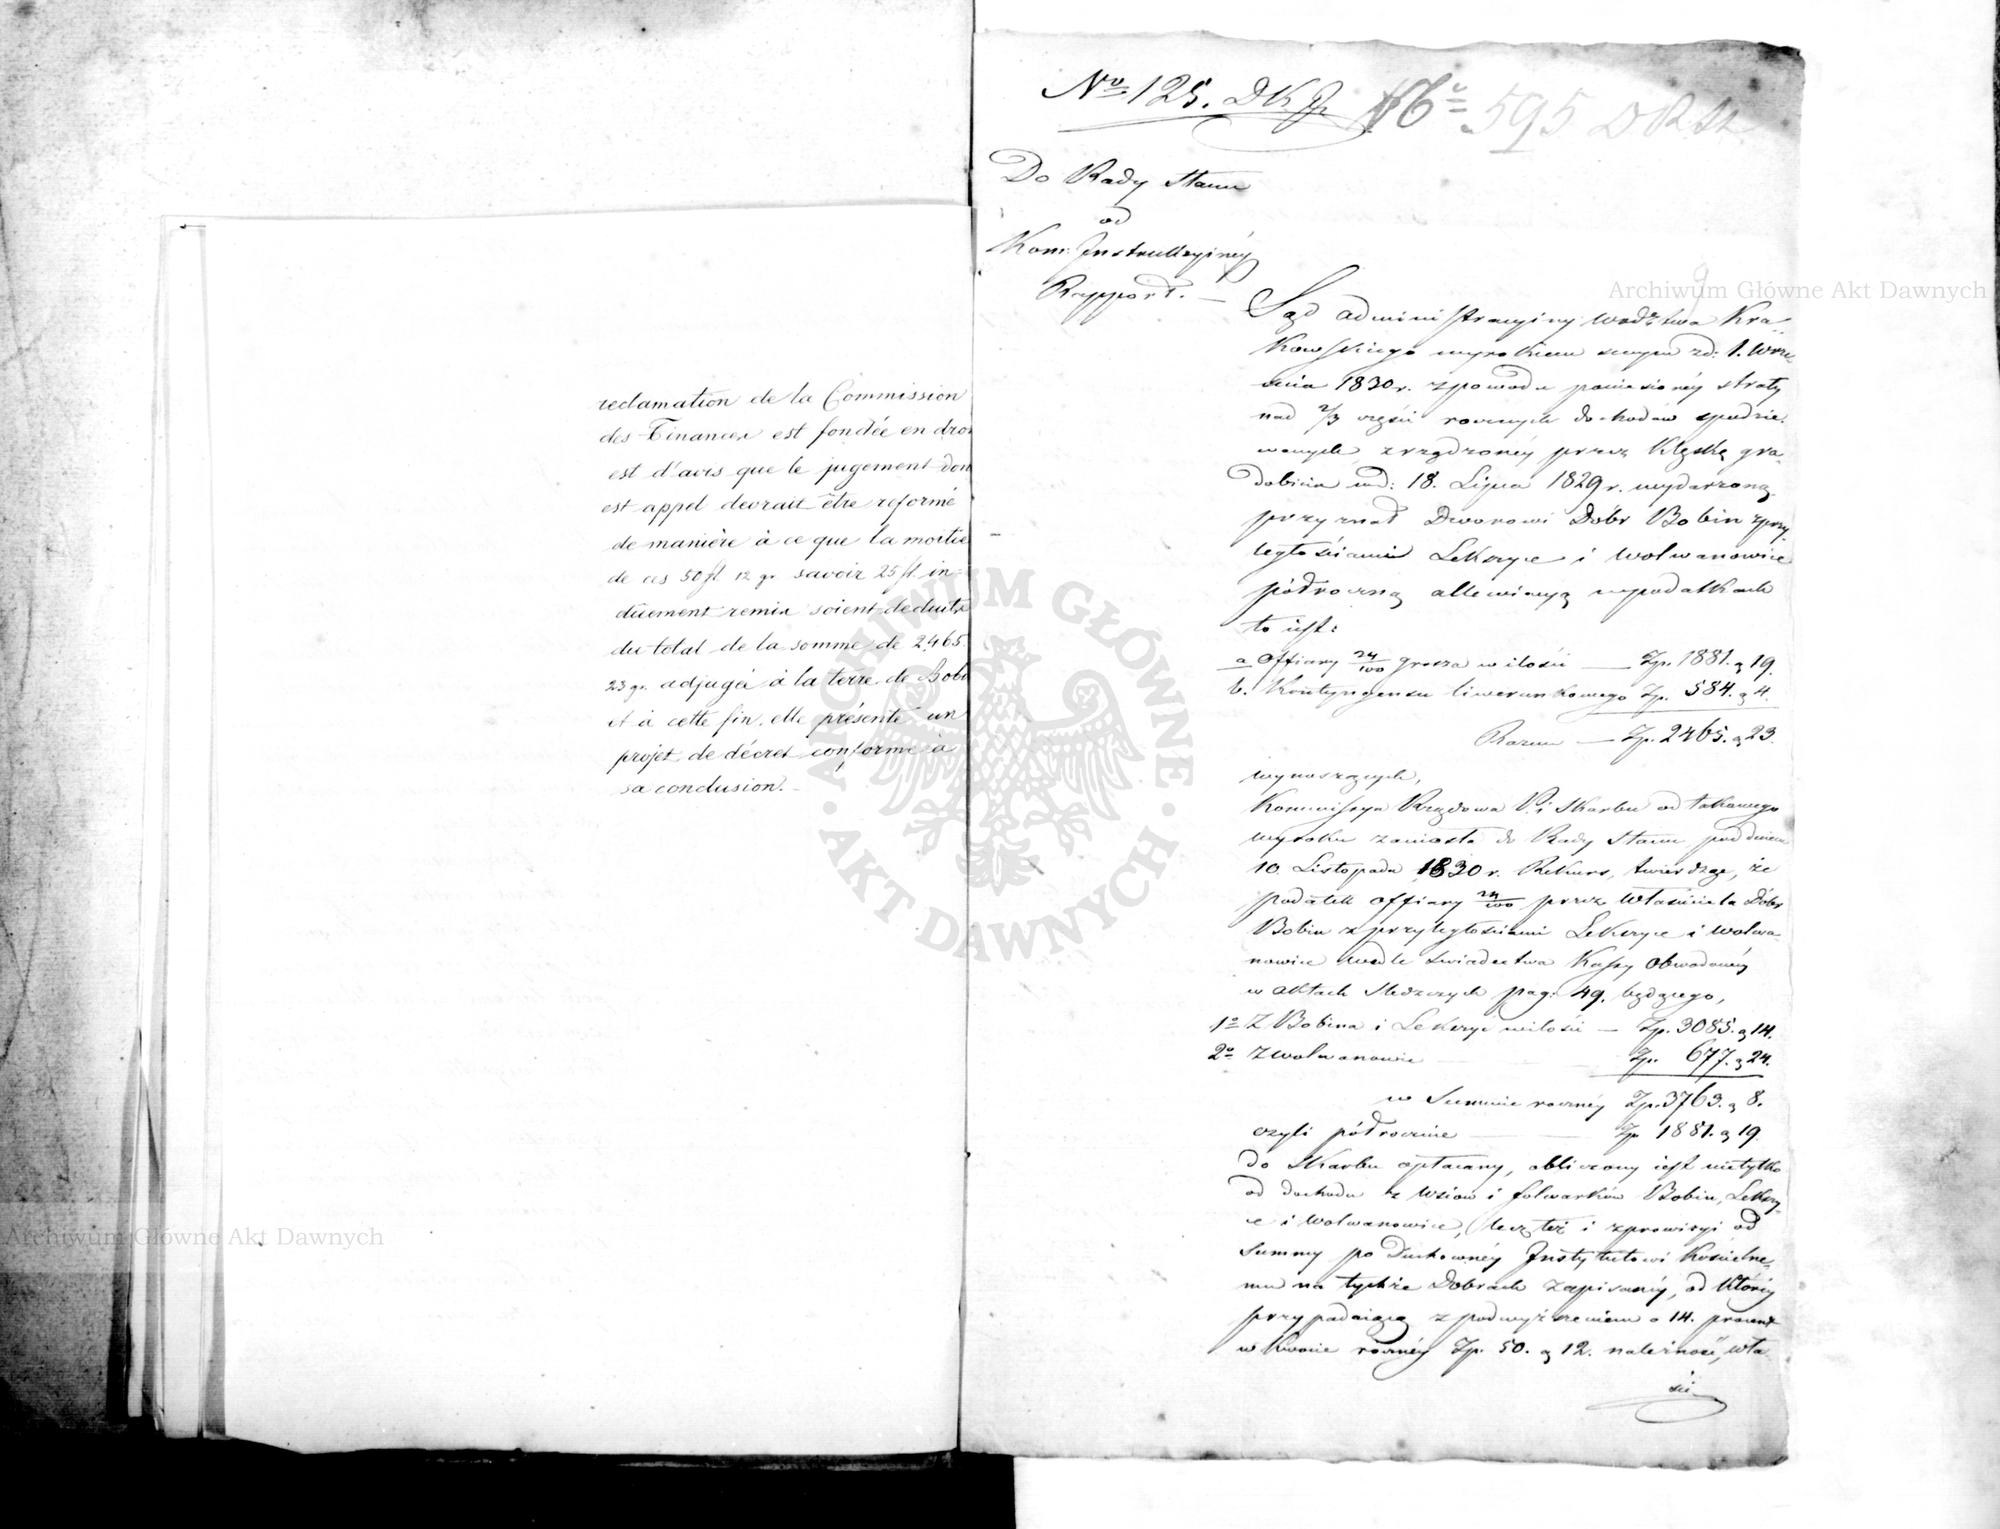 reclamation de la Commission
des Finances est fondée en droi
est d'avis que le jugement don
est appel devrait être reformé
de manière à ce que la moitié
de ces 50 fl. 12 gr. savoir 25 fl. in=
dûement remis soient deduits
du total de la somme de 2465
23 gr. adjugée à la terre de Bobi
et à cette fin, elle présente un
projet de décret conforme à
sa conclusion.
No 125. DKJ No 595
Do Rady Stanu
od
Kom: Instrukcyinéy
Rapport.
Sąd administracyiny Wodztwa Kra
kowskiego wyrokiem swym zd: 1. Wrze
śnia 1830 r. z powodu poniesionéy straty
nad 2/3 części rocznych dochodów spodzie
wanych zrządzonéy przez klęskę gra
dobicia nad: 18. Lipca 1829 r. wydarzoną
przyznał Dworowi Dóbr Bobin z przy
ległościami Lekszyce i Wolwanowice
półroczną allewiacyą w podatkach
to iest:
a Offiary 24/100 grosza w ilości — Zp. 1881. g 19.
b. Kontyngensu liwerunkowego Zp. 584. g 4.
Razem — Zp. 2465. g 23.
wynoszących,
Kommissya Rządowa P. i Skarbu od takowego
wyroku zaniosła do Rady Stanu pod dniem
10. Listopada 1830 r. Rekurs, twierdząc, że
podatek offiary 24/100 przez Właściciela Dóbr
Bobin z przyległościami Lekszyce i Wolwa
nowice wedle świadectwa Kassy Obwodowéy
w aktach śledczych pag: 49. będącego,
1o Z Bobina i Lekszyc w ilości — Zp. 3085. g 14.
2o Z Wolwanowic Zp. 677. g 24.
w Summie rocznéy Zp. 3763. g 8.
czyli półrocznie — Zp 1881. g 19
do Skarbu opłacany, obliczony iest nietylko
od dochodu z Wsiów i folwarków Bobin, Lekszy
ce i Wolwanowice, lecz też i z prowizyi od
Summy po Duchownéy Instytutowi Kościelne
mu na tychże Dobrach zapisanéy, od któréy
przypadaiącą z podwyższeniem o 14. procent
w kwocie rocznéy Zp. 50. g 12. należność, wła
ści
Archiwum Główne Akt Dawnych
Archiwum Główne Akt Dawnych
ARCHIWUM GŁÓWNE
AKT DAWNYCH